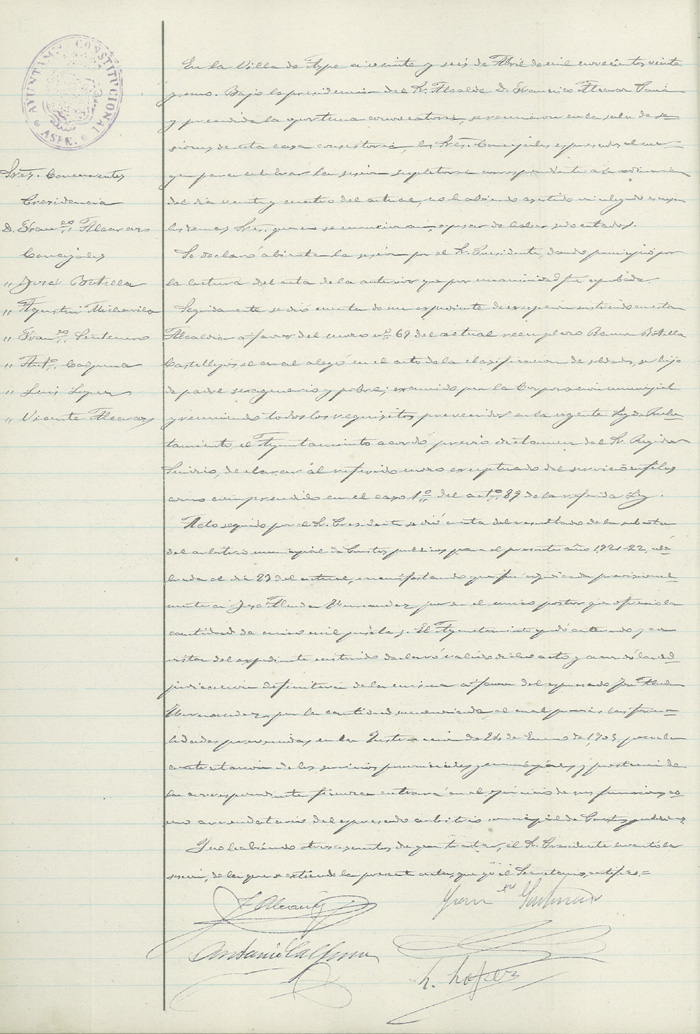 AYUNTAMTO CONSTITUCIONAL
ASPE
Sres. Concurrentes
Presidencia
D. Franco Alcaraz
Concejales
" José Botella
" Agustín Miralles
" Franco
" Anto Calpena
" Luis López
" Vicente Alcaraz
En la Villa de Aspe a veinte y seis de Abril de mil novecientos veinte
y uno. Bajo la presidencia del Sr. Alcalde D. Francisco Alcaraz
y precedida la oportuna convocatoria, se reunieron en la sala de se-
siones de esta casa consistorial, los Sres. Concejales expresados al mar-
gen para celebrar la sesión supletoria correspondiente a la ordinaria
del día veinte y cuatro del actual, no habiendo asistido
los demás Sres. que a pesar de haber sido citados.
Se declaró abierta la sesión por el Sr. Presidente, dando principio por
la lectura del acta de la anterior que por unanimidad fue aprobada.
Seguidamente se dió cuenta de un expediente de excepción instruido en esta
Alcaldía a favor del mozo no 69 del actual reemplazo Ramón Botella
Castellejos el cual alegó en el acto de la clasificación de soldados, ser hijo
de padre sexagenario y pobre; examinado por la Corporación municipal
y reuniendo todos los requisitos prevenidos en la vigente Ley de Reclu-
tamiento, el Ayuntamiento acordó, previo dictamen del Sr. Regidor
Síndico, declarar al referido mozo exceptuado del servicio en filas
como comprendido en el caso 1o del arto 89 de la referida Ley.
Acto seguido por el Sr. Presidente se dió cuenta del resultado de la subasta
del arbitrio municipal de Puestos públicos para el presente año 1921-22, cele-
brada el día 23 del actual, manifestando que fue adjudicada provisional-
mente a José Hernández, por ser el único postor que ofreció la
cantidad de cinco mil pesetas. El Ayuntamiento en
vista del expediente instruido declaró válido dicho acto y acordó la ad-
judicación definitiva de la misma a favor del expresado José
Hernández, por la cantidad mencionada el cual
prevenidas en la Instrucción de 24 de Enero de 1905, para la
contratación de los servicios provinciales y municipales, y prestación de
la correspondiente fianza entrará en el ejercicio de sus funciones co-
mo arrendatario del expresado arbitrio municipal de Puestos públicos.
Y no habiendo otros asuntos de que tratar, el Sr. Presidente levantó la
sesión, de la que se extiende la presente acta, que yo el Secretario, certifico.=
F. Alcaraz
Antonio Calpena
L. López